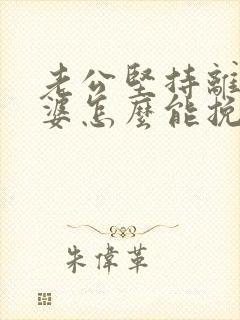 老公堅持離
婆怎麼能挽
朱偉革